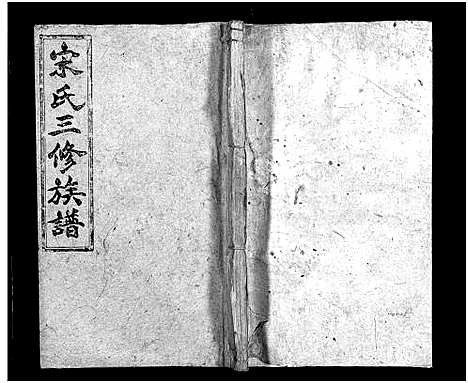 宗氏三修族譜